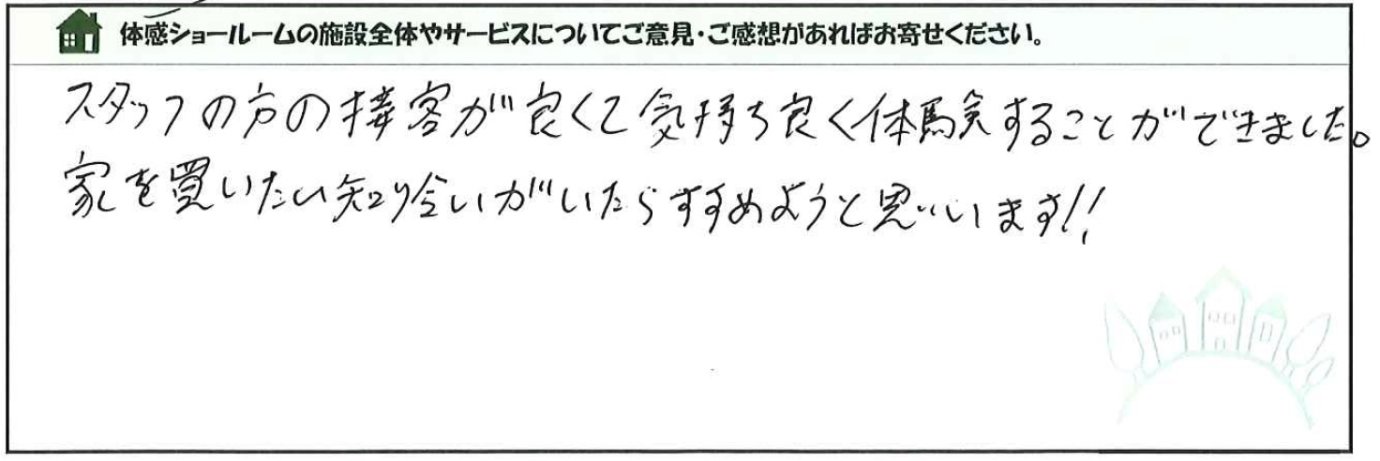 体感ショールームの施設全体やサービスについてご意見・ご感想があればお寄せください。
スタッフの方の接客が良くて気持ち良く体験することができました。
家を買いたい知り合いがいたらすすめようと思います!!